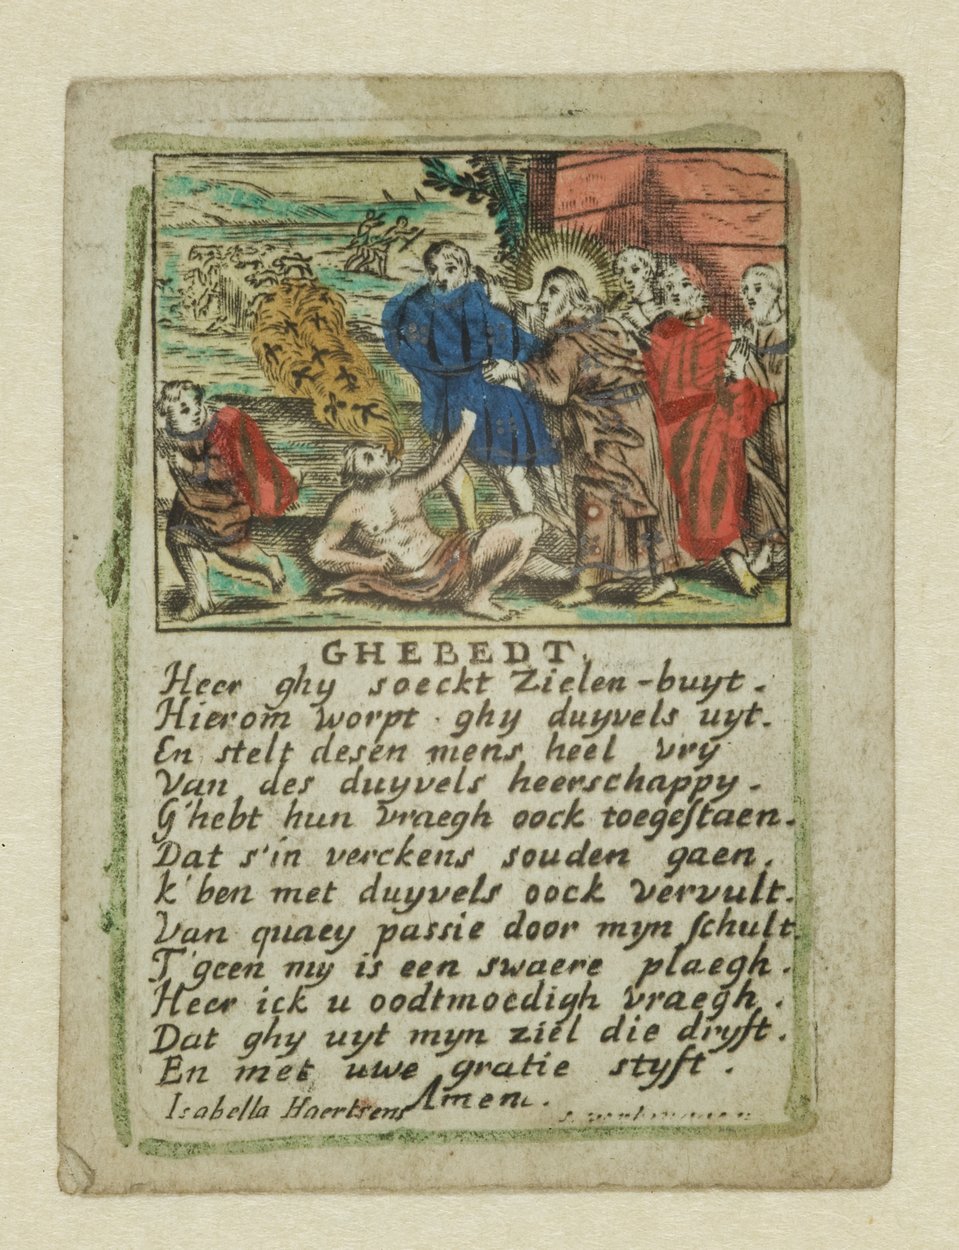 GHEBEDT.
Heer ghy soeckt Zielen-buyt.
Hierom worpt ghy duyvels uyt.
En stelt desen mens heel vry
Van des duyvels heerschappy.
G'hebt hun vraegh oock toegeſtaen.
Dat s'in verckens souden gaen.
k'ben met duyvels oock vervult.
Van quaey passie door myn ſchult.
T'geen my is een swaere plaegh.
Heer ick u oodtmoedigh vraegh.
Dat ghy uyt myn ziel die dryft.
En met uwe gratie styft.
Amen.
Isabella Haertsens